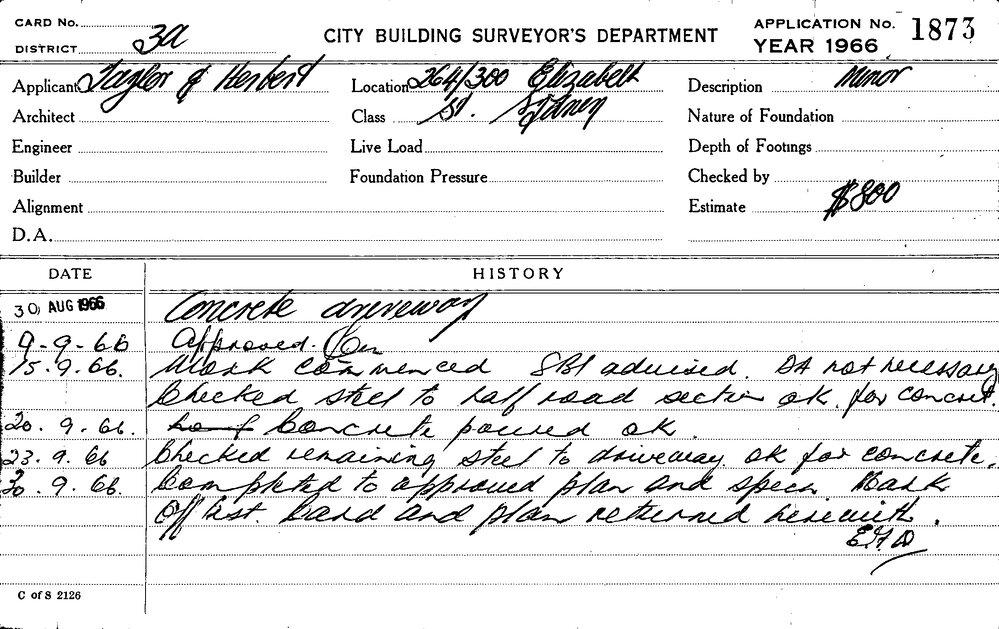 CARD No.
DISTRICT 3a
CITY BUILDING SURVEYOR'S DEPARTMENT
APPLICATION No. 1873
YEAR 1966
Applicant Taylor & Herbert
Location 264/300 Elizabeth
Description Minor
Architect
Class St. Sydney
Nature of Foundation
Engineer
Live Load
Depth of Footings
Builder
Foundation Pressure
Checked by
Alignment
Estimate $800
D.A.
DATE HISTORY
30 AUG 1966 Concrete driveway
9-9-66 Approved.
15.9.66. Work commenced SBI advised. DA not necessary
Checked steel to half road section ok. for concret.
20.9.66. Concrete poured ok.
23.9.66 Checked remaining steel to driveway ok for concrete.
30.9.66. Completed to approved plan and specn Mark
Off list. Card and plan returned herewith.
C of S 2126